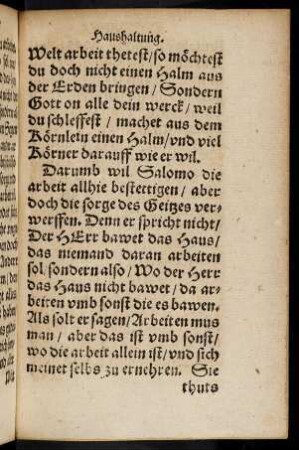 Haushaltung.
Welt arbeit thetest/so möchtest
du doch nicht einen Halm aus
der Erden bringen/Sondern
Gott on alle dein werck/weil
du schleffest/machet aus dem
Körnlein einen Halm/vnd viel
Körner darauff wie er wil.
Darumb wil Salomo die
arbeit allhie bestettigen/aber
doch die sorge des Geitzes ver-
werffen. Denn er spricht nicht/
Der HErr bawet das Haus/
das niemand daran arbeiten
sol sondern also/Wo der Herr
das Haus nicht bawet/da ar-
beiten vmb sonst die es bawen.
Als solt er sagen/Arbeiten mus
man/aber das ist vmb sonst/
wo die arbeit allein ist/vnd sich
meinet selbs zu ernehren. Sie
thuts